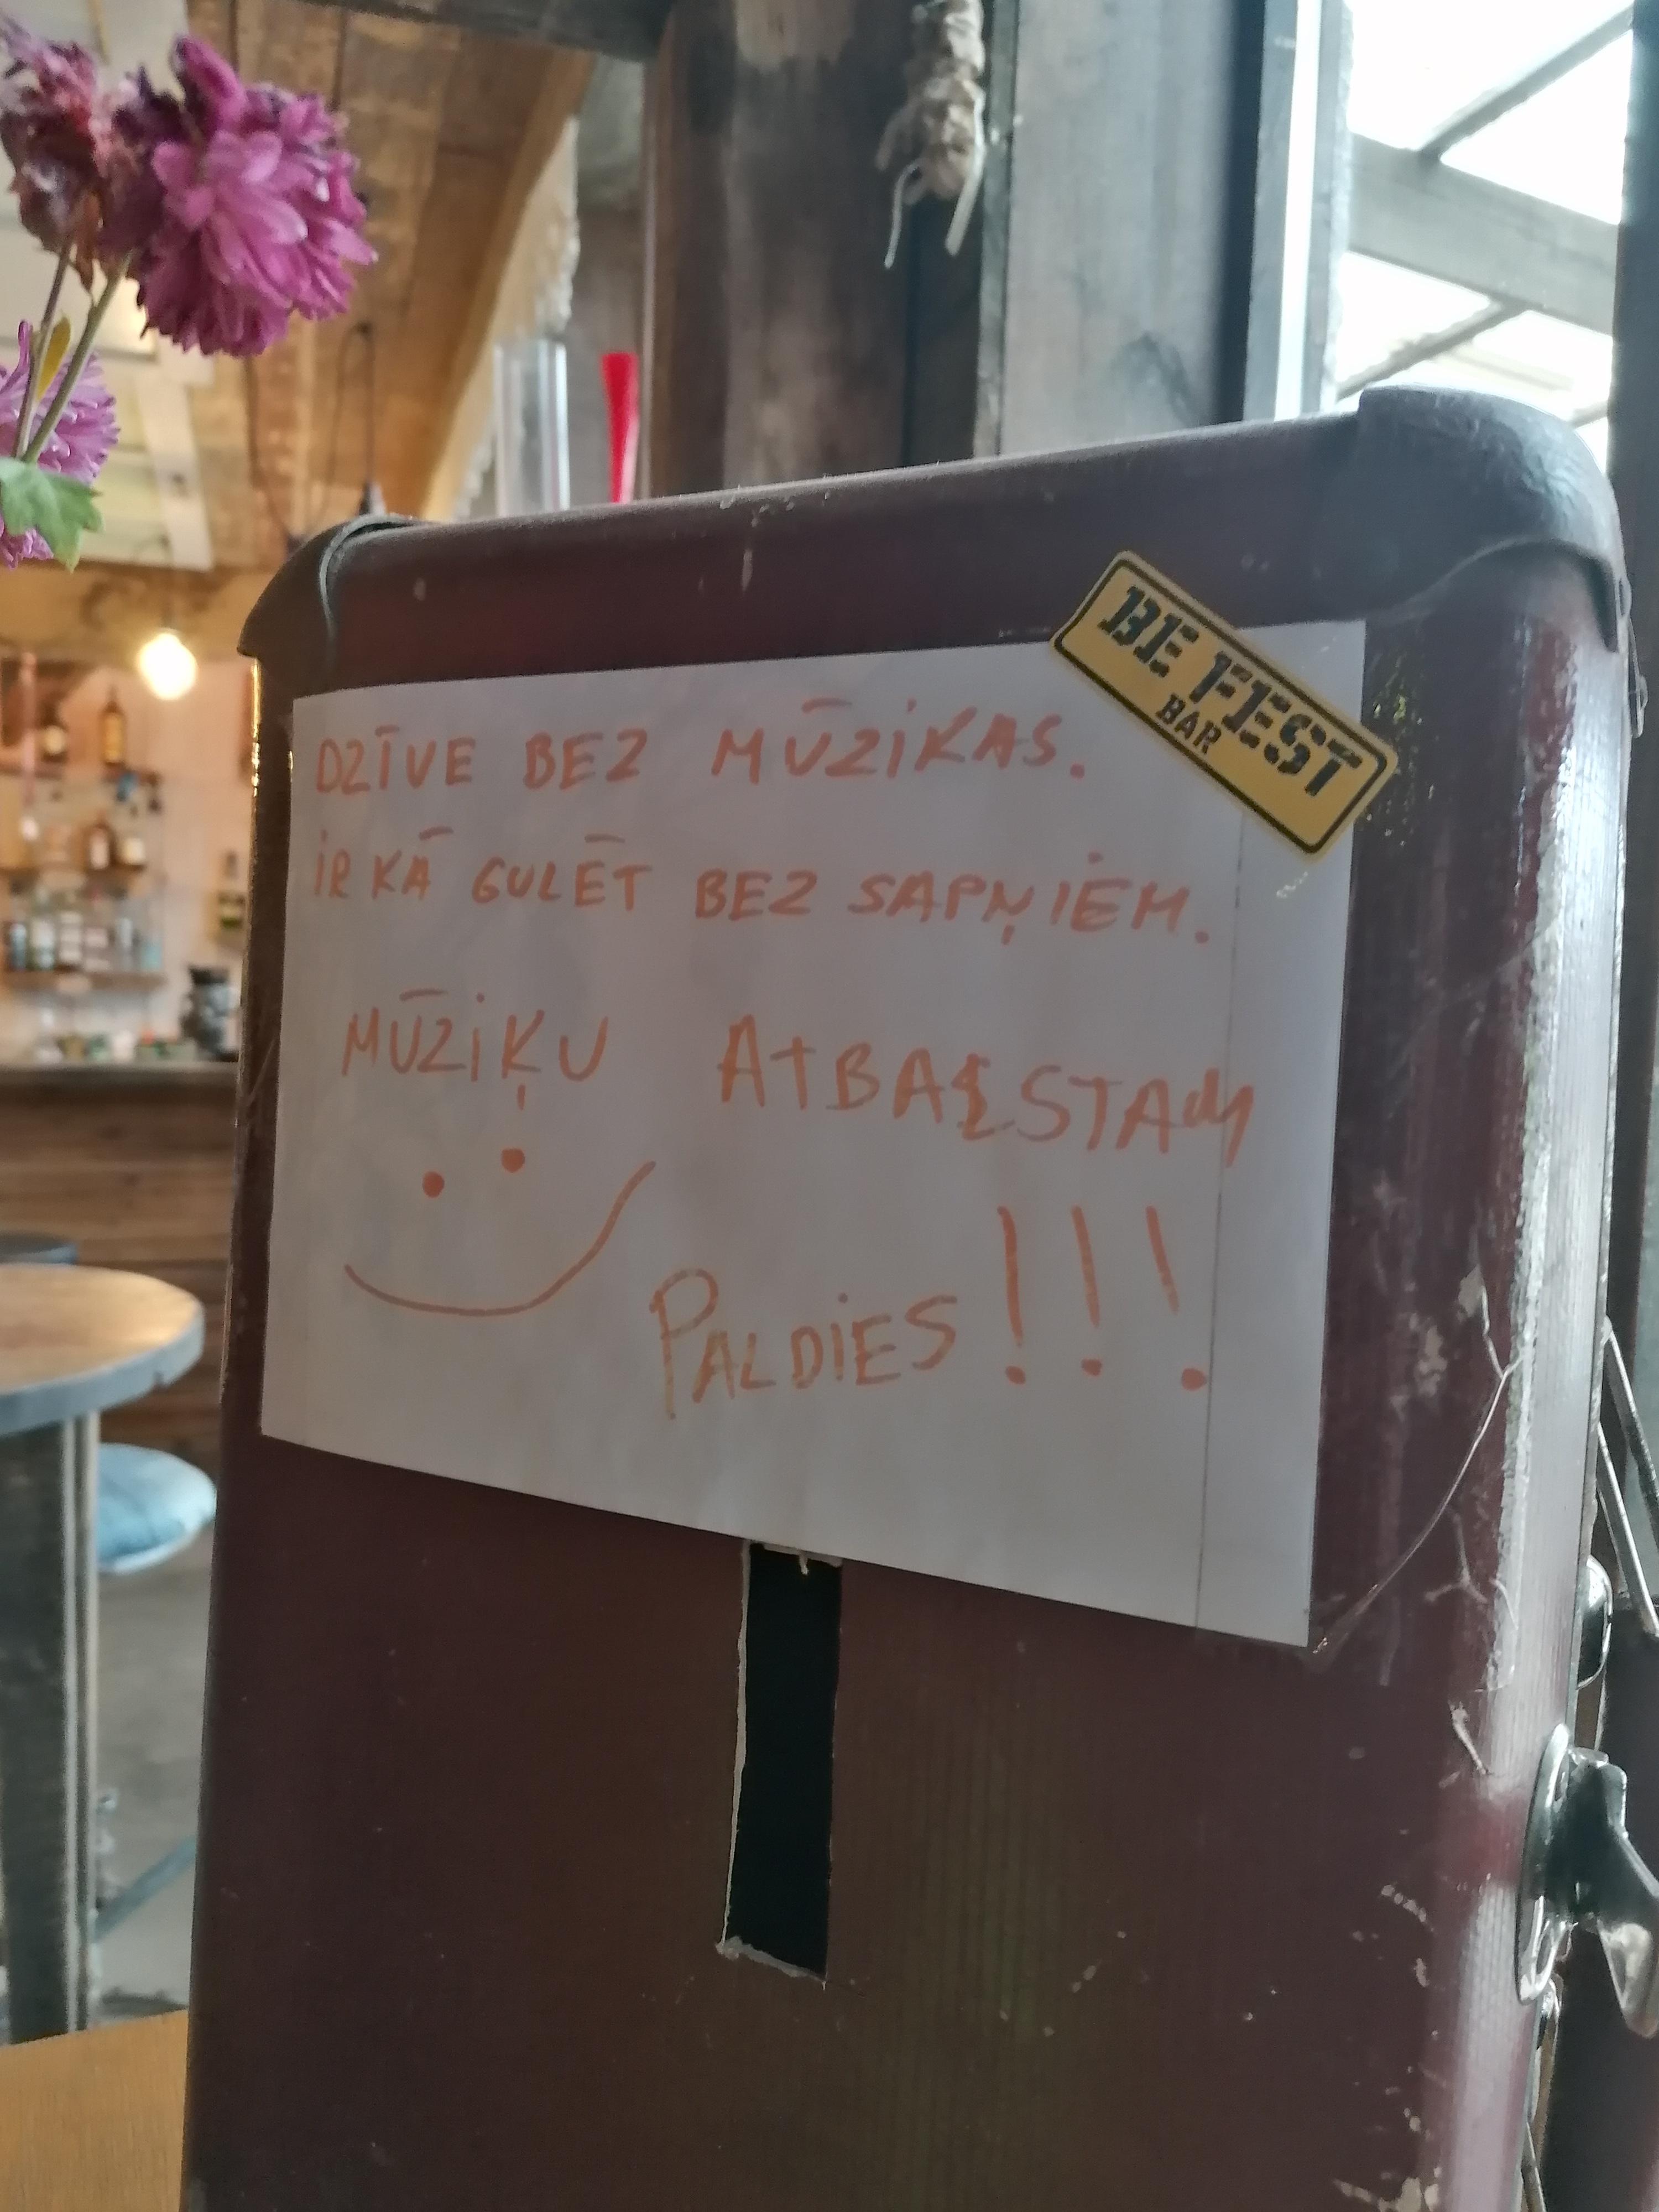 BE FEST
BAR
DZĪVE BEZ MŪZiKAS.
iR KĀ GULĒT BEZ SAPŅiEM.
MŪZiĶU ATBALSTAM
PALDiES!!!